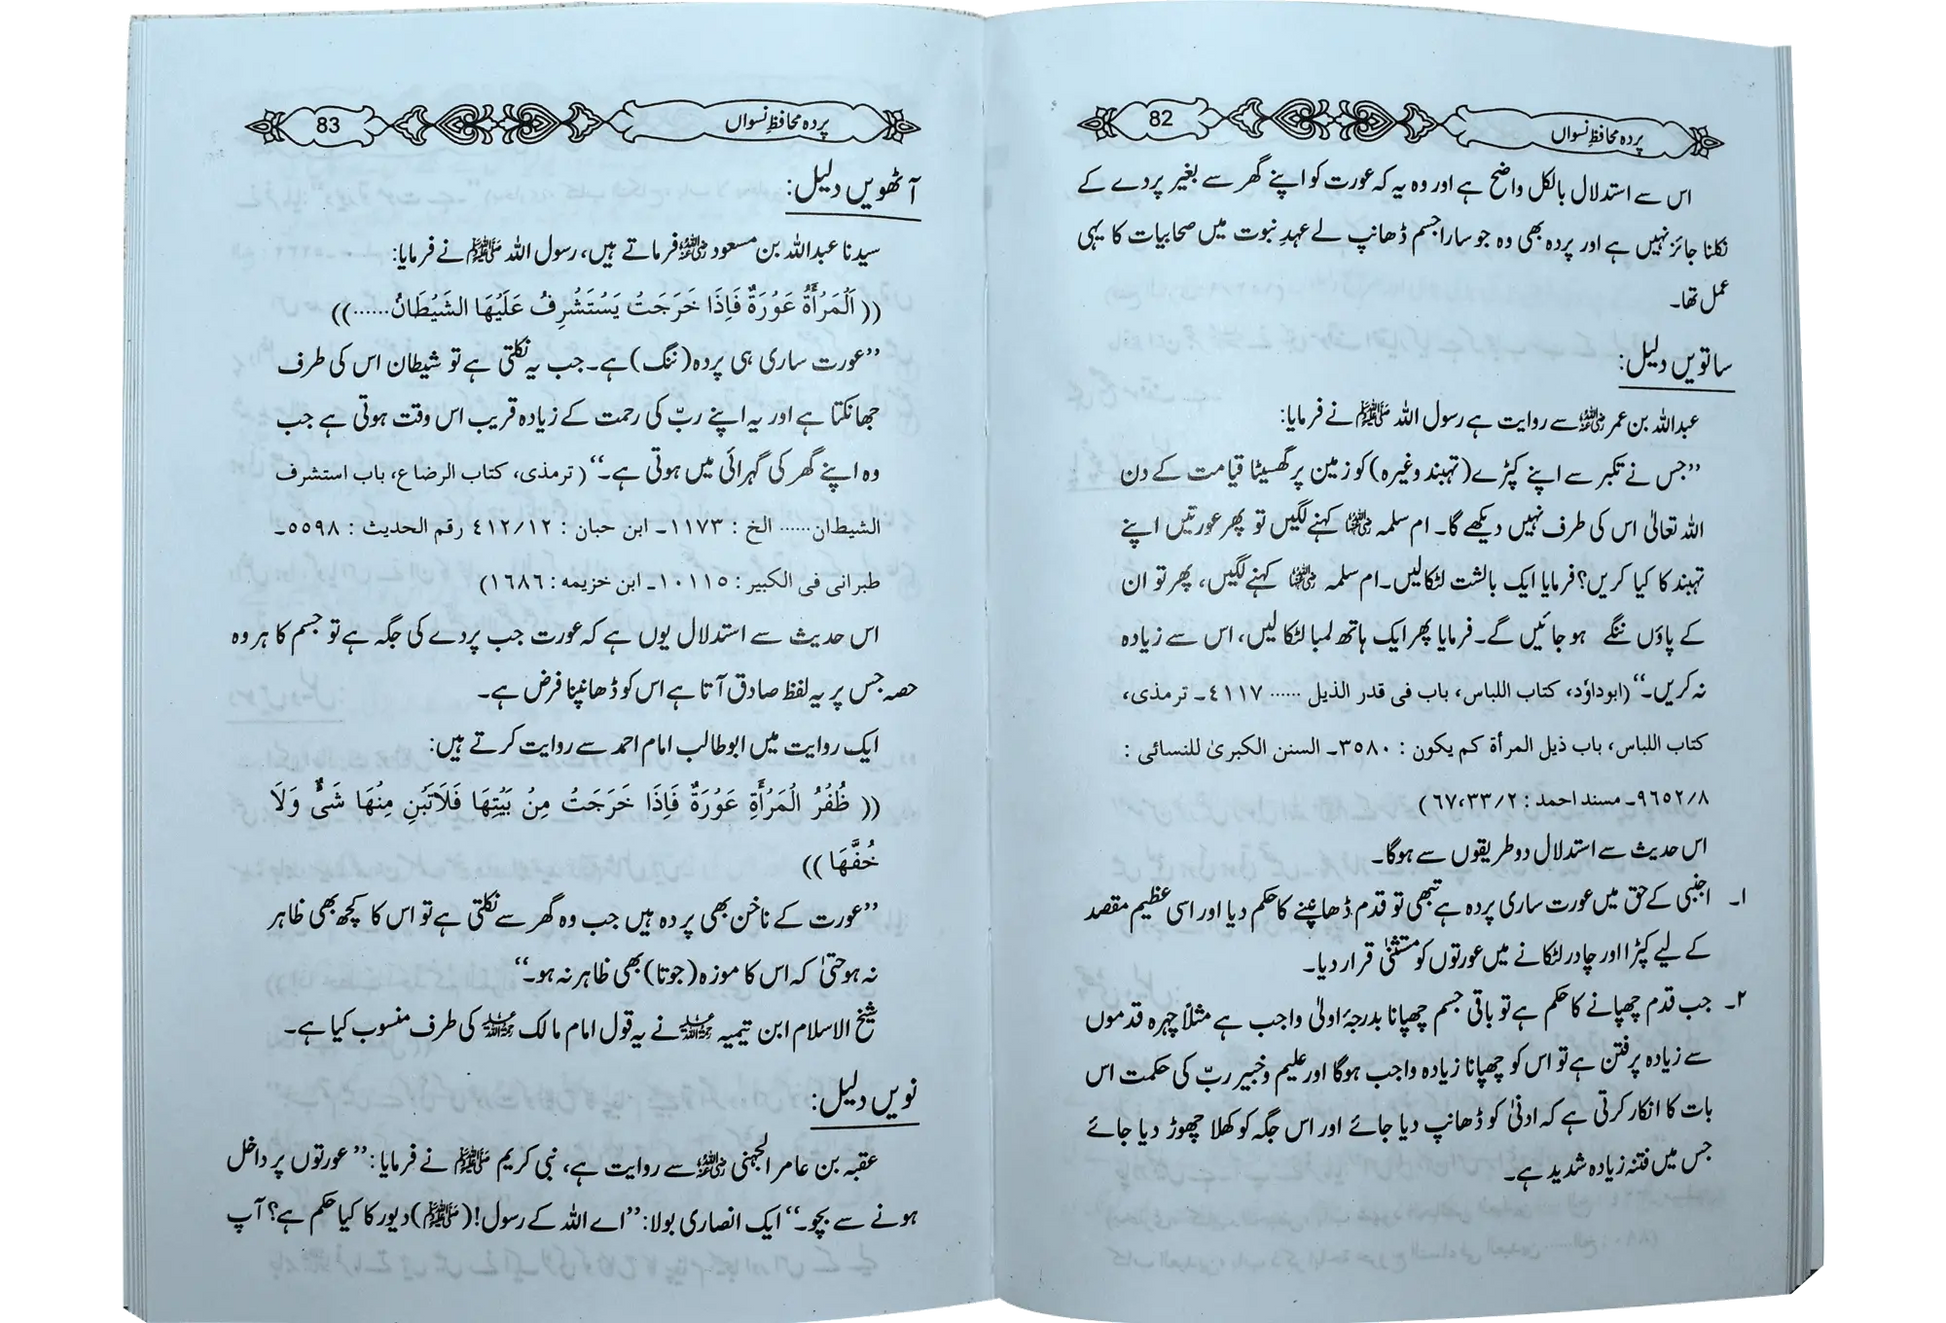 پردہ محافظِ نسواں 82
اس سے استدلال بالکل واضح ہے اور وہ یہ کہ عورت کو اپنے گھر سے بغیر پردے کے
نکلنا جائز نہیں ہے اور پردہ بھی وہ جو سارا جسم ڈھانپ لے عہدِ نبوت میں صحابیات کا یہی
عمل تھا۔
ساتویں دلیل:
عبداللہ بن عمر رضی اللہ عنہ سے روایت ہے رسول اللہ ﷺ نے فرمایا:
’’جس نے تکبر سے اپنے کپڑے (تہبند وغیرہ) کو زمین پر گھسیٹا قیامت کے دن
اللہ تعالیٰ اس کی طرف نہیں دیکھے گا۔ ام سلمہ رضی اللہ عنہا کہنے لگیں تو پھر عورتیں اپنے
تہبند کا کیا کریں؟ فرمایا ایک بالشت لٹکا لیں۔ ام سلمہ رضی اللہ عنہا کہنے لگیں، پھر تو ان
کے پاؤں ننگے ہو جائیں گے۔ فرمایا پھر ایک ہاتھ لمبا لٹکا لیں، اس سے زیادہ
نہ کریں۔‘‘ (ابوداؤد، کتاب اللباس، باب فی قدر الذیل ...... ٤١١٧۔ ترمذی،
کتاب اللباس، باب ذیل المرأة کم یکون : ٣٥٨٠۔ السنن الکبریٰ للنسائی :
٩٦٥٢/٨۔ مسند احمد : ٦٧،٣٣/٢)
اس حدیث سے استدلال دو طریقوں سے ہوگا۔
۱۔ اجنبی کے حق میں عورت ساری پردہ ہے تبھی تو قدم ڈھانپنے کا حکم دیا اور اسی عظیم مقصد
کے لیے کپڑا اور چادر لٹکانے میں عورتوں کو مستثنیٰ قرار دیا۔
۲۔ جب قدم چھپانے کا حکم ہے تو باقی جسم چھپانا بدرجۂ اولیٰ واجب ہے مثلاً چہرہ قدموں
سے زیادہ پرفتن ہے تو اس کو چھپانا زیادہ واجب ہوگا اور علیم و خبیر ربّ کی حکمت اس
بات کا انکار کرتی ہے کہ ادنیٰ کو ڈھانپ دیا جائے اور اس جگہ کو کھلا چھوڑ دیا جائے
جس میں فتنہ زیادہ شدید ہے۔
پردہ محافظِ نسواں 83
آٹھویں دلیل:
سیدنا عبداللہ بن مسعود رضی اللہ عنہ فرماتے ہیں، رسول اللہ ﷺ نے فرمایا:
(( اَلْمَرْأَةُ عَوْرَةٌ فَاِذَا خَرَجَتْ يَسْتَشْرِفُ عَلَيْهَا الشَّيْطَانُ......))
’’عورت ساری ہی پردہ (ننگ) ہے۔ جب یہ نکلتی ہے تو شیطان اس کی طرف
جھانکتا ہے اور یہ اپنے ربّ کی رحمت کے زیادہ قریب اس وقت ہوتی ہے جب
وہ اپنے گھر کی گہرائی میں ہوتی ہے۔‘‘ (ترمذی، کتاب الرضاع، باب استشرف
الشیطان...... الخ : ١١٧٣۔ ابن حبان : ٤١٢/١٢ رقم الحدیث : ٥٥٩٨۔
طبرانی فی الکبیر : ١٠١١٥۔ ابن خزیمہ : ١٦٨٦)
اس حدیث سے استدلال یوں ہے کہ عورت جب پردے کی جگہ ہے تو جسم کا ہر وہ
حصہ جس پر یہ لفظ صادق آتا ہے اس کو ڈھانپنا فرض ہے۔
ایک روایت میں ابوطالب امام احمد سے روایت کرتے ہیں:
(( ظُفْرُ الْمَرْأَةِ عَوْرَةٌ فَاِذَا خَرَجَتْ مِنْ بَيْتِهَا فَلَاتَبِنِ مِنْهَا شَیْءٌ وَلَا
خُفَّهَا ))
’’عورت کے ناخن بھی پردہ ہیں جب وہ گھر سے نکلتی ہے تو اس کا کچھ بھی ظاہر
نہ ہو حتیٰ کہ اس کا موزہ (جوتا) بھی ظاہر نہ ہو۔‘‘
شیخ الاسلام ابن تیمیہ رحمہ اللہ نے یہ قول امام مالک رحمہ اللہ کی طرف منسوب کیا ہے۔
نویں دلیل:
عقبہ بن عامر الجہنی رضی اللہ عنہ سے روایت ہے، نبی کریم ﷺ نے فرمایا: ’’عورتوں پر داخل
ہونے سے بچو۔‘‘ ایک انصاری بولا: ’’اے اللہ کے رسول! (ﷺ) دیور کا کیا حکم ہے؟ آپ